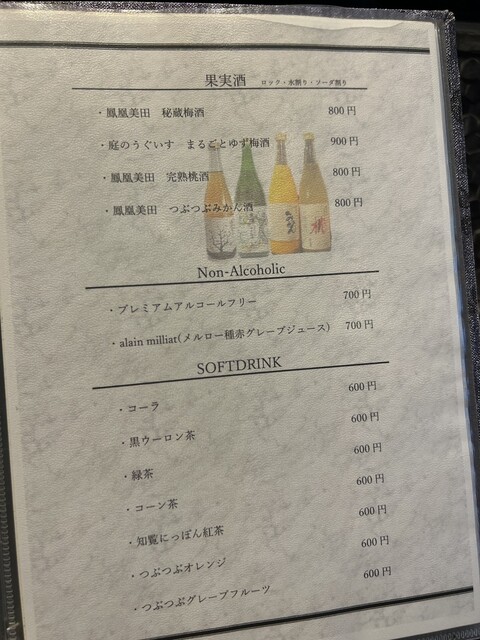 果実酒 ロック・水割り・ソーダ割り
・鳳凰美田 秘蔵梅酒 800円
・庭のうぐいす まるごとゆず梅酒 900円
・鳳凰美田 完熟桃酒 800円
・鳳凰美田 つぶつぶみかん酒 800円
Non-Alcoholic
・プレミアムアルコールフリー 700円
・alain milliat(メルロー種赤グレープジュース) 700円
SOFTDRINK
・コーラ 600円
・黒ウーロン茶 600円
・緑茶 600円
・コーン茶 600円
・知覧にっぽん紅茶 600円
・つぶつぶオレンジ 600円
・つぶつぶグレープフルーツ 600円